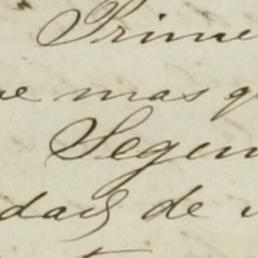 Prime
ue mas q
Segun
dad de